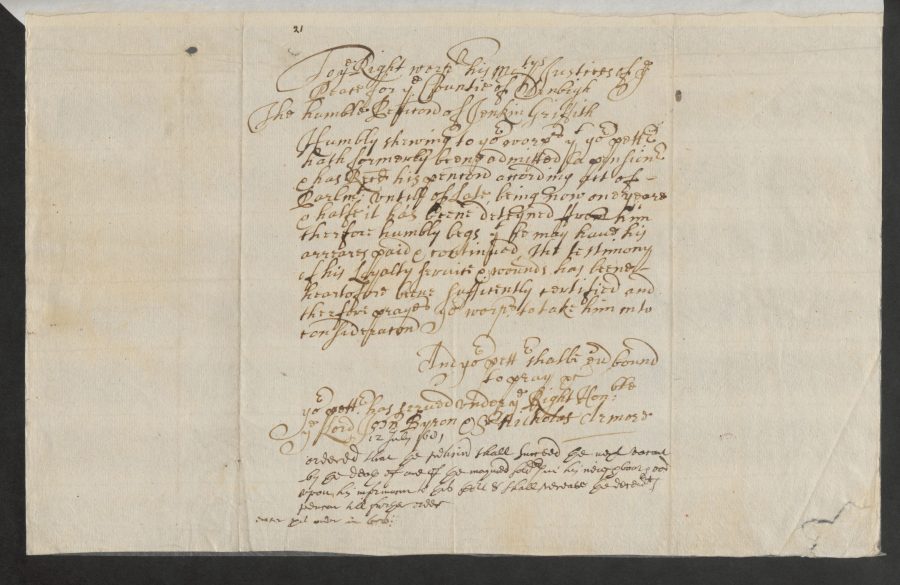 21
To ye Right worll his Matys Justices of ye
Peace for ye Countie of Denbigh
The humble Peticon of Jenkin Griffith
Humbly shewing to yor worps yt yor pettr
hath formerly beene admitted a pensionr
& has Recd his pencon acording act of
Parlmt untill of Late being now one yeare
& halfe it has beene deteyned from him
therfore humbly begs yt he may have his
arreares paid & continued, The testimony
of his Loyalty service & wounds has beene
heartofore beene suffitiently certified and
therfore prayes yor worps to take him into
consideracon
And yor pettr shalbe ever bound
to pray &c
yor pettr has served under ye Right Honble
ye Lord John Byron & Sr Nicholas Armore
12 July 1661
ordered that he shall succeed he next
by he death of one of he maymed his neighbour
upon his shall he
pencon till further order
order in